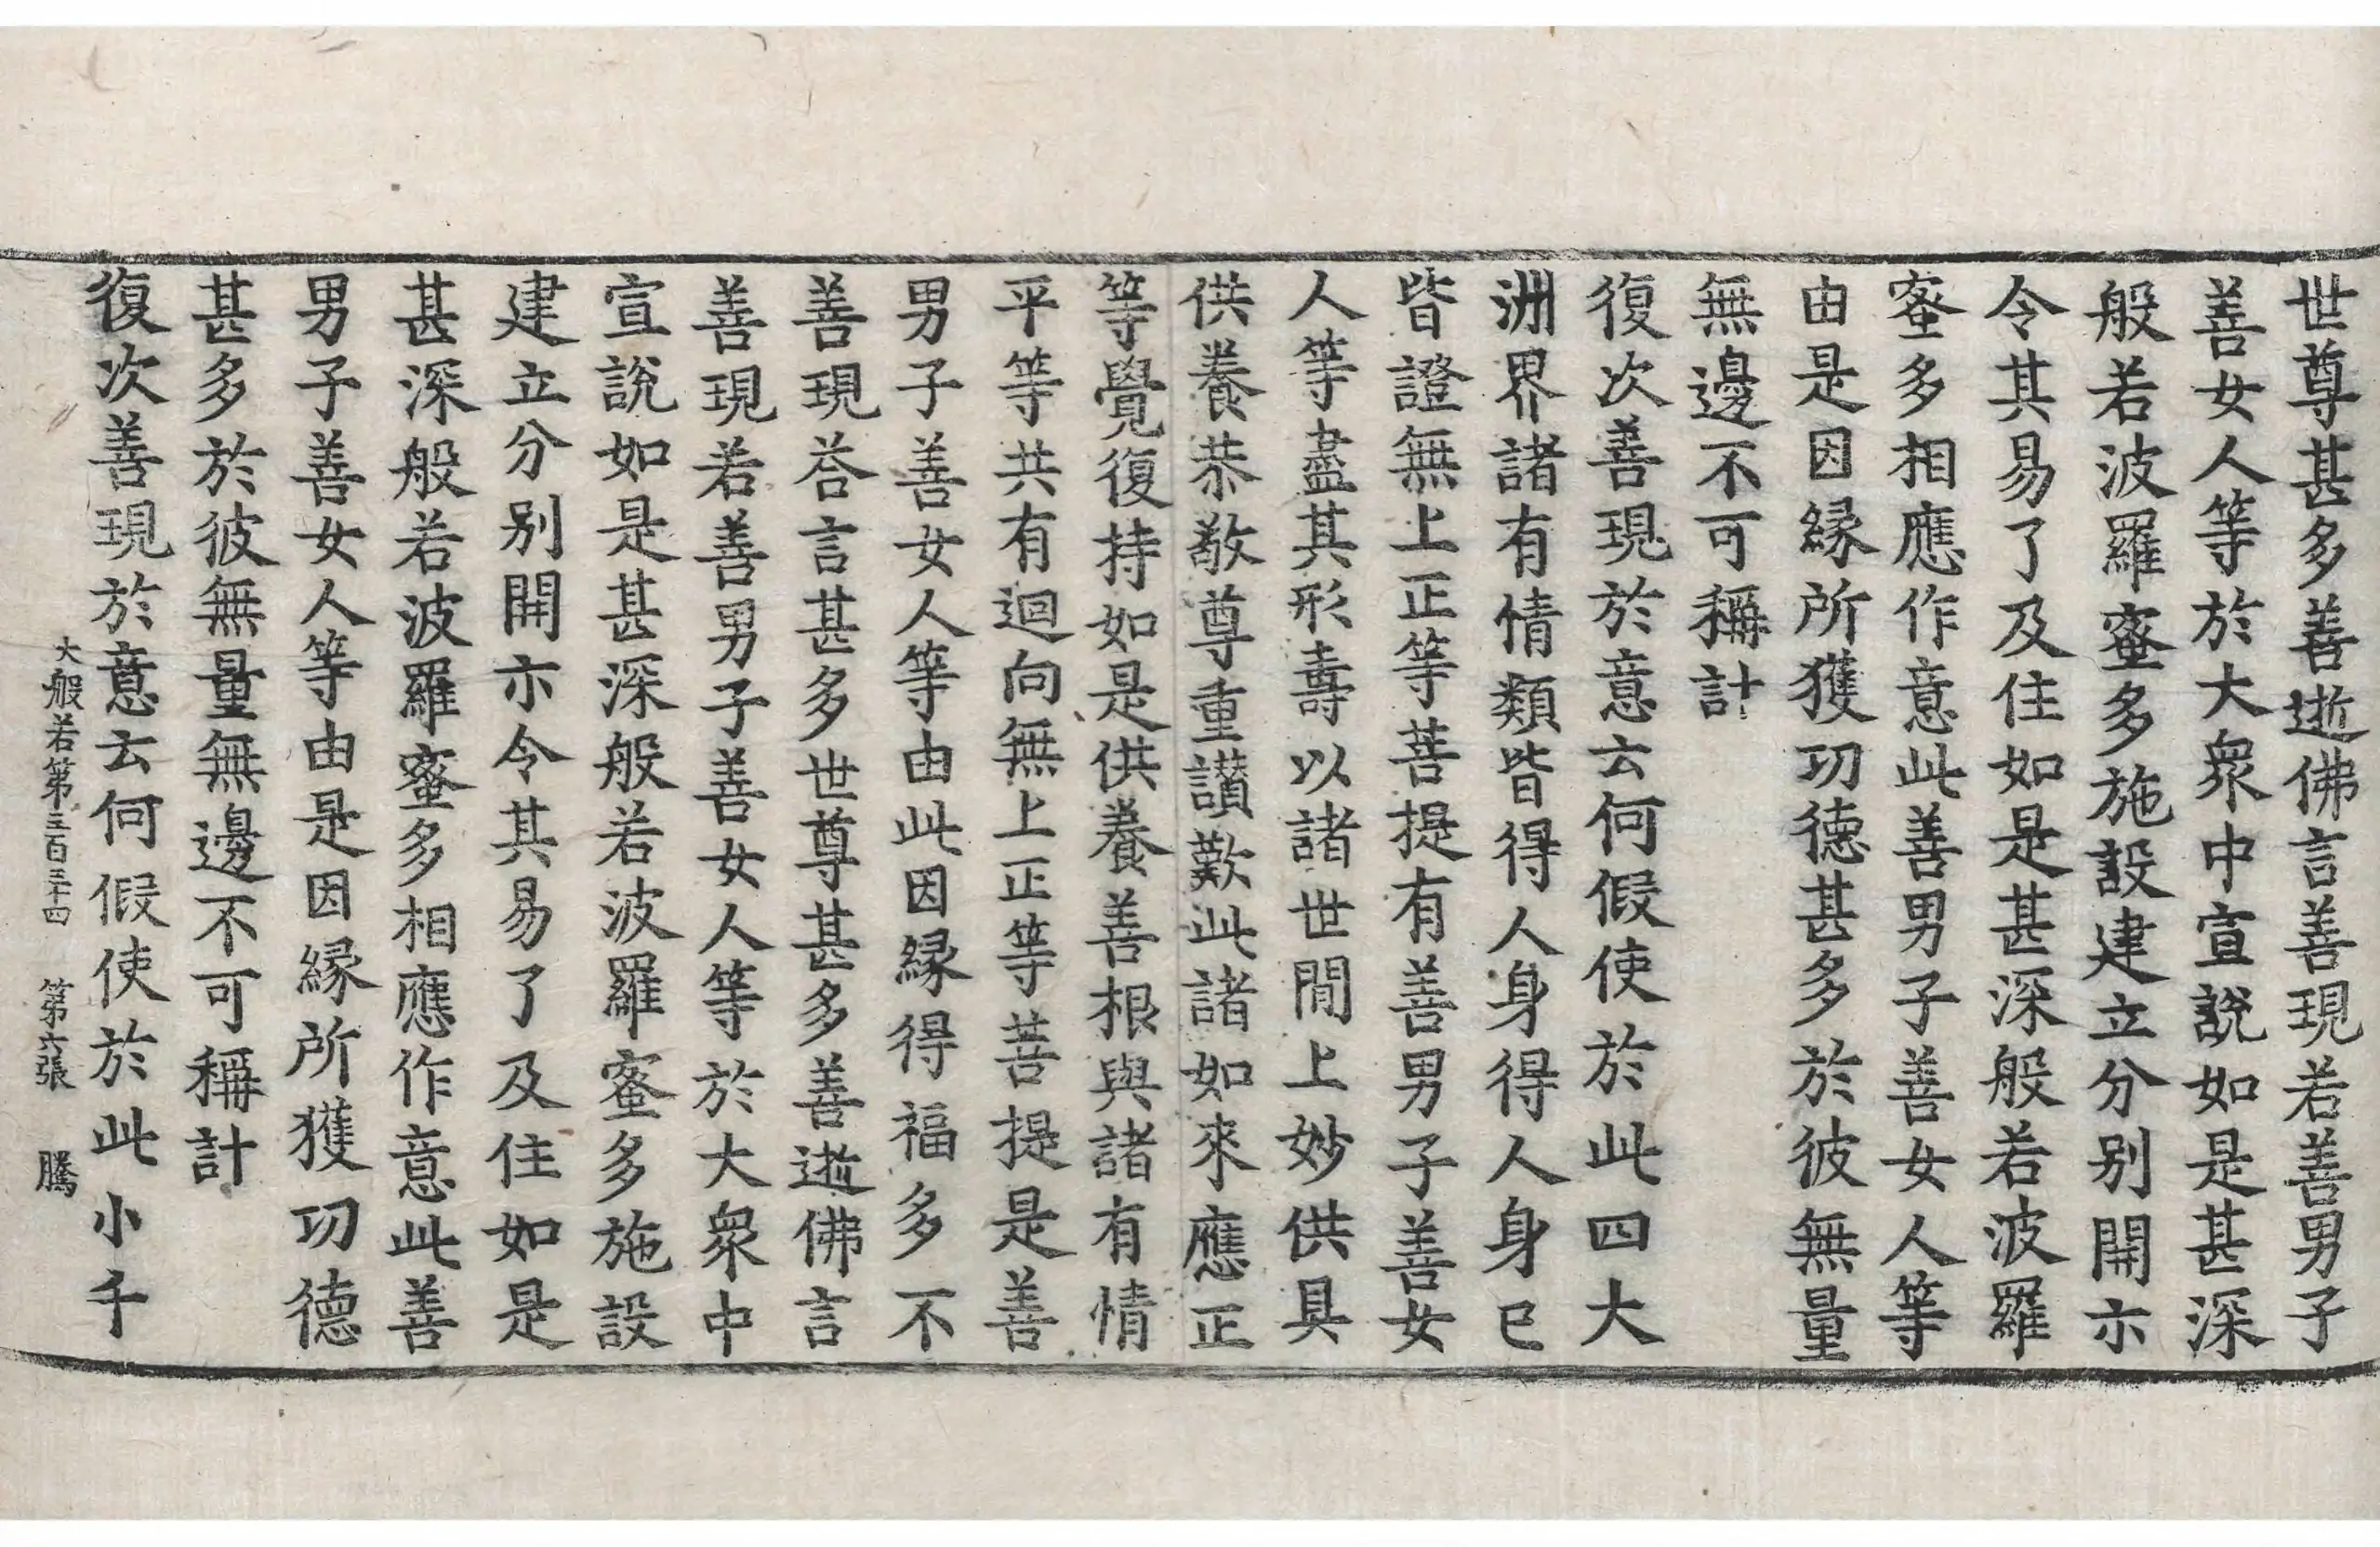 世尊甚多善逝佛言善現若善男子
善女人等於大衆中宣說如是甚深
般若波羅蜜多施設建立分別開示
令其易了及住如是甚深般若波羅
蜜多相應作意此善男子善女人等
由是因緣所獲功德甚多於彼無量
無邊不可稱計
復次善現於意云何假使於此四大
洲界諸有情類皆得人身得人身已
皆證無上正等菩提有善男子善女
人等盡其形壽以諸世間上妙供具
供養恭敬尊重讃歎此諸如來應正
等覺復持如是供養善根與諸有情
平等共有迴向無上正等菩提是善
男子善女人等由此因緣得福多不
善現荅言甚多世尊甚多善逝佛言
善現若善男子善女人等於大衆中
宣說如是甚深般若波羅蜜多施設
建立分別開示令其易了及住如是
甚深般若波羅蜜多相應作意此善
男子善女人等由是因緣所獲功德
甚多於彼無量無邊不可稱計
復次善現於意云何假使於此小千
大般若第三百三十四 第六張 騰